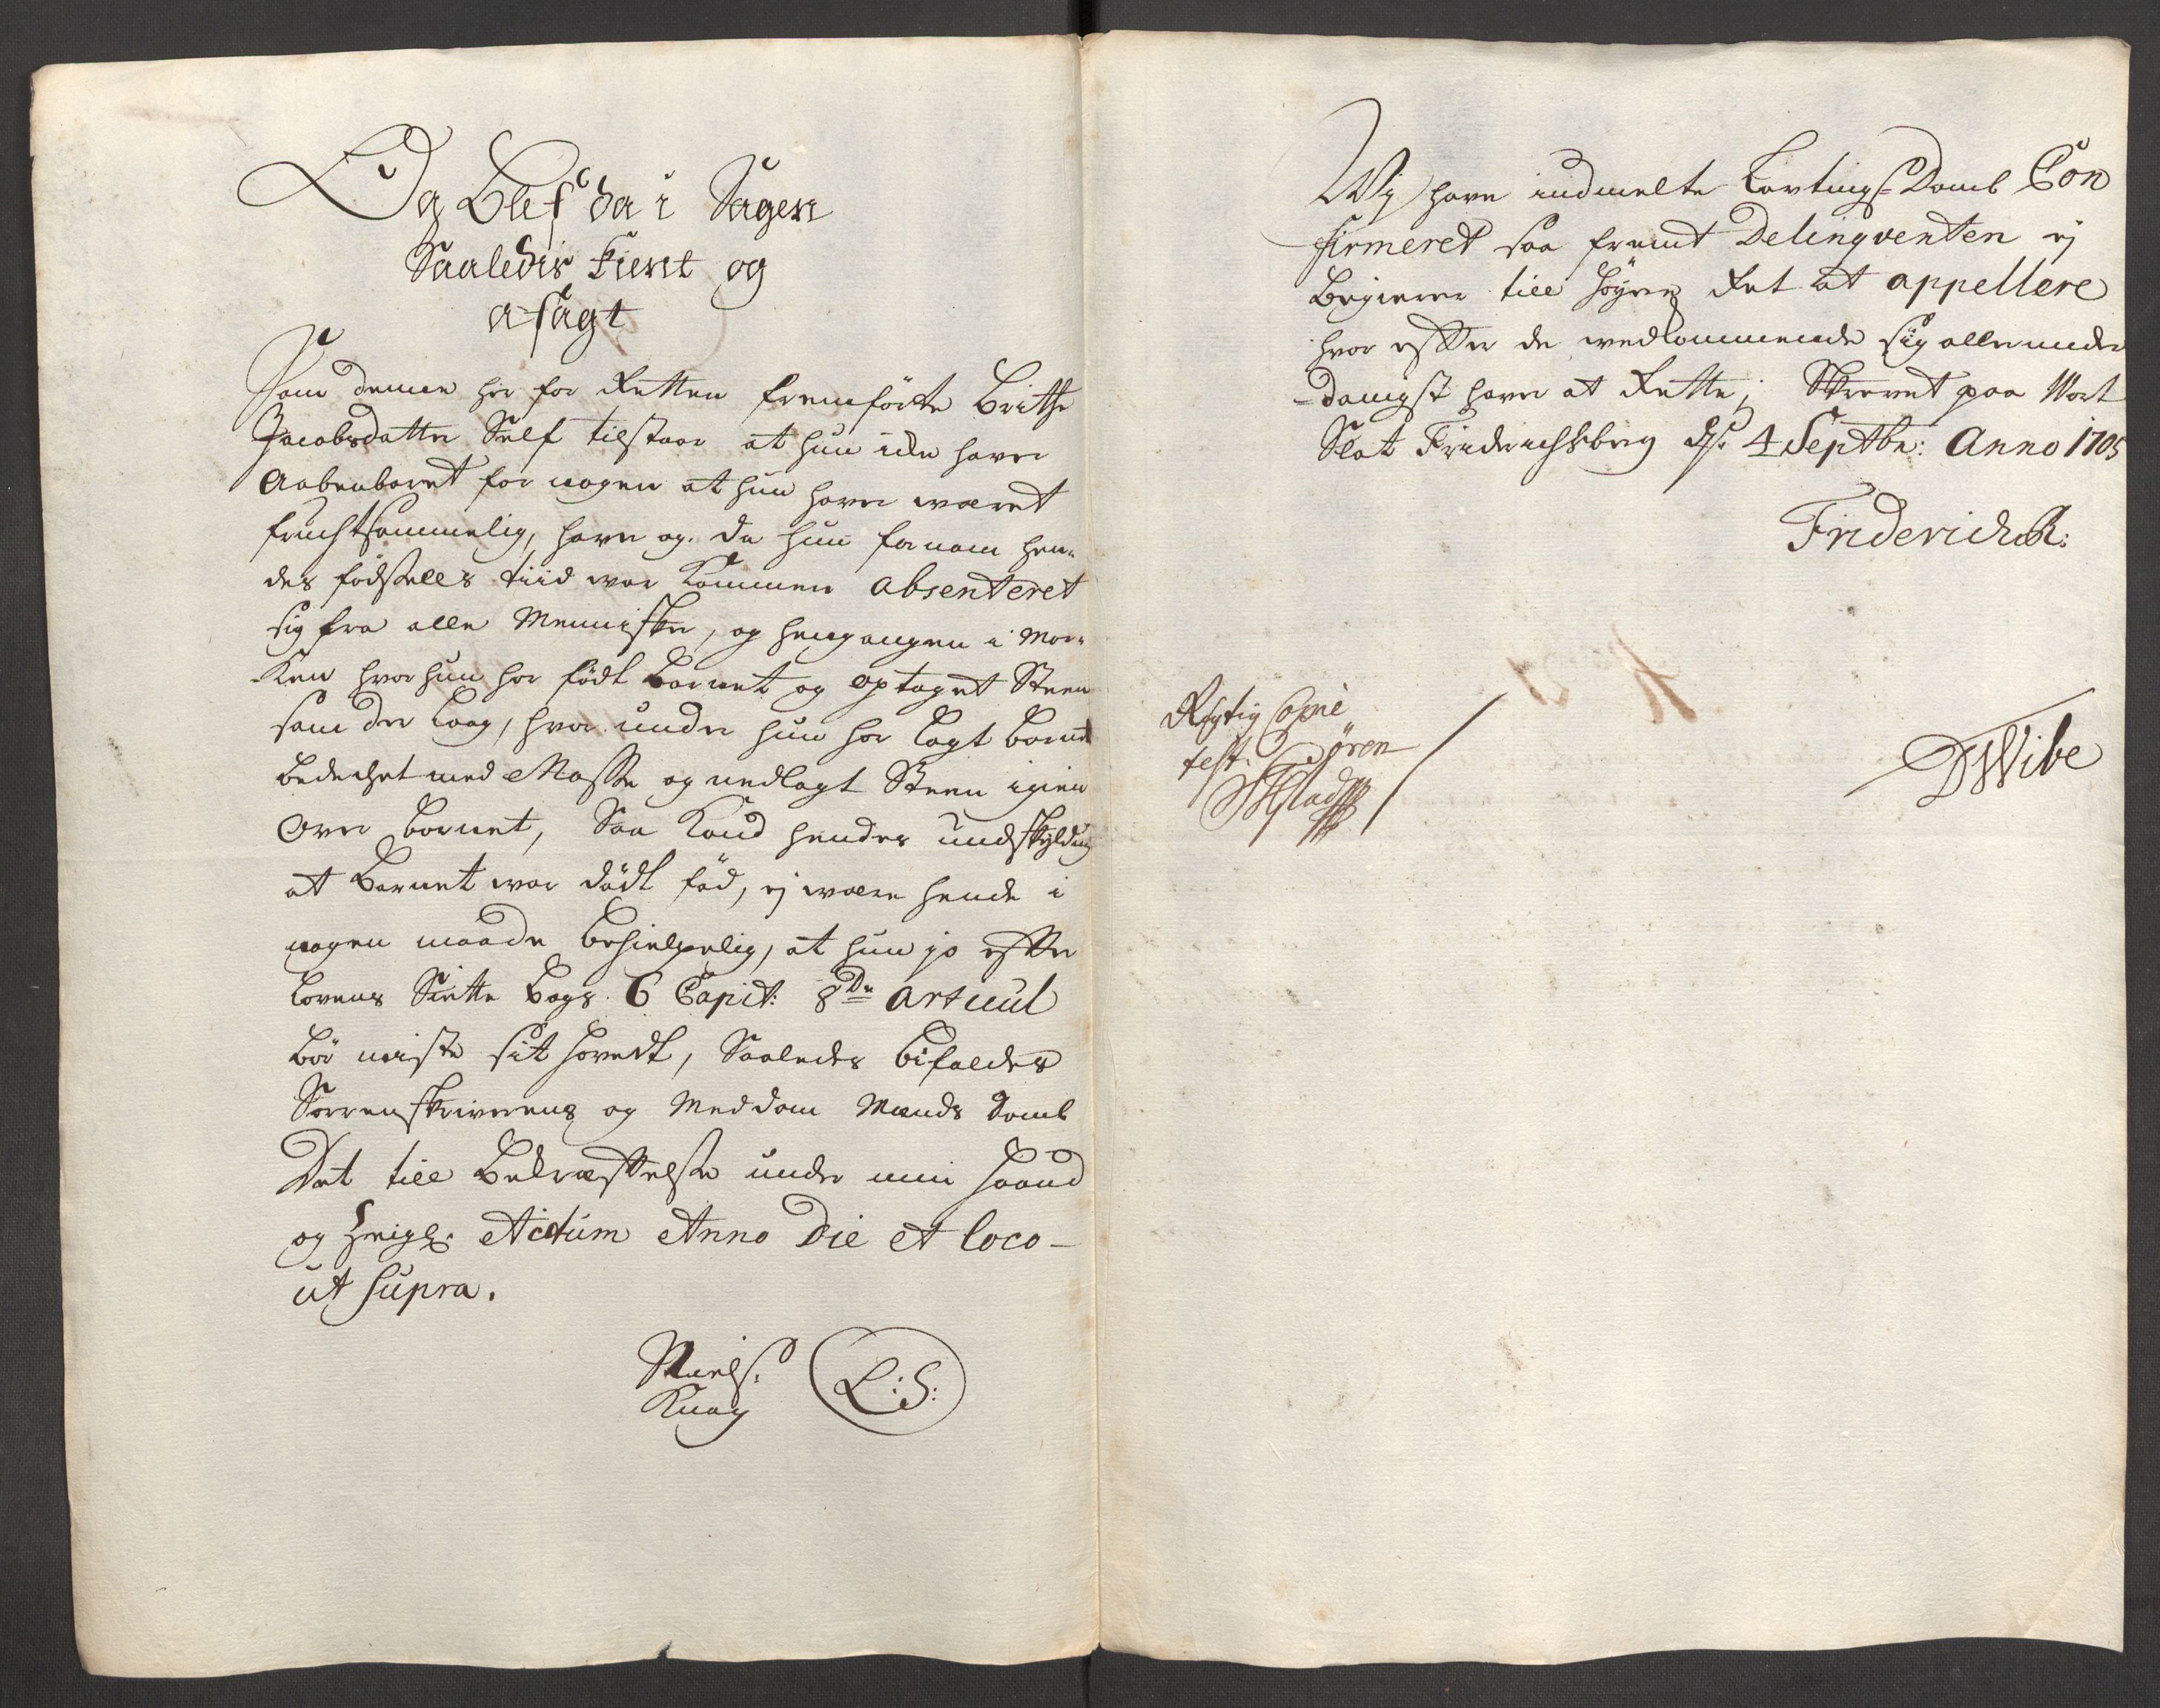 Da Blef da i Sagen
Saaledis Kient og
afsagt
Som denne her for Retten fremförte Brithe
Jacobsdatter Self tilstaar at hun icke haver
Aabenbaret for nogen at hun haver wæret
fruchtsommelig, haver og da hun fornam hen„
des födsells tiid war kommen absenteret
sig fra alle Mennisker, og hengangen i Mar„
ken hvor hun har födt Barnet og optaget Steene
som der laag, hvor under hun har lagt Barnet
bedechet med Mosse og nedlagt Steen igien
over barnet, Saa kand hendes undskylding
at Barnet war dödt föd, ej wære hende i
nogen maade behielpelig, at hun jo effter
Lovens Siette Bogs 6 Capit: 8de Articul
bör miste sit Hovedt, Saaledes bifaldes
Sorrenskriverens og Meddoms Mænds Domb
Det till Bekræfftelse under min Haand
og Zeigl. Actum Anno Die et loco
ut supra.
Niels
Knag
L: S:
Wij have indmelte Lavtings-Domb Con
firmeret saa fremt Delinqventen ej
Begierer till Höyere Ret at appellere
hvor effter de wedkommende sig allerunder
-danigst haver at Rette; Skrevet paa Wort
Slot Friderichsberg ds: 4 Septbr: Anno 1705
Friderich R:
Rigtig Copie
test. Sören
DWibe